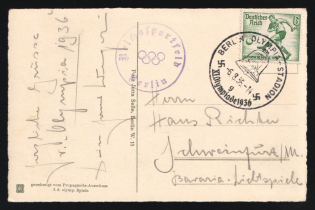 Herzliche Grüsse
v.d. Olympia 1936
Reichssportfeld
Berlin
Deutsches Reich
6
BERLIN OLYMPIA-STADION
-6.8.36
XI. Olympiade 1936
g
Herrn
Hans Richter
Schweinfurt/M.
Bavaria-Lichtspiele
genehmigt vom Propaganda-Ausschuss
f. d. olymp. Spiele